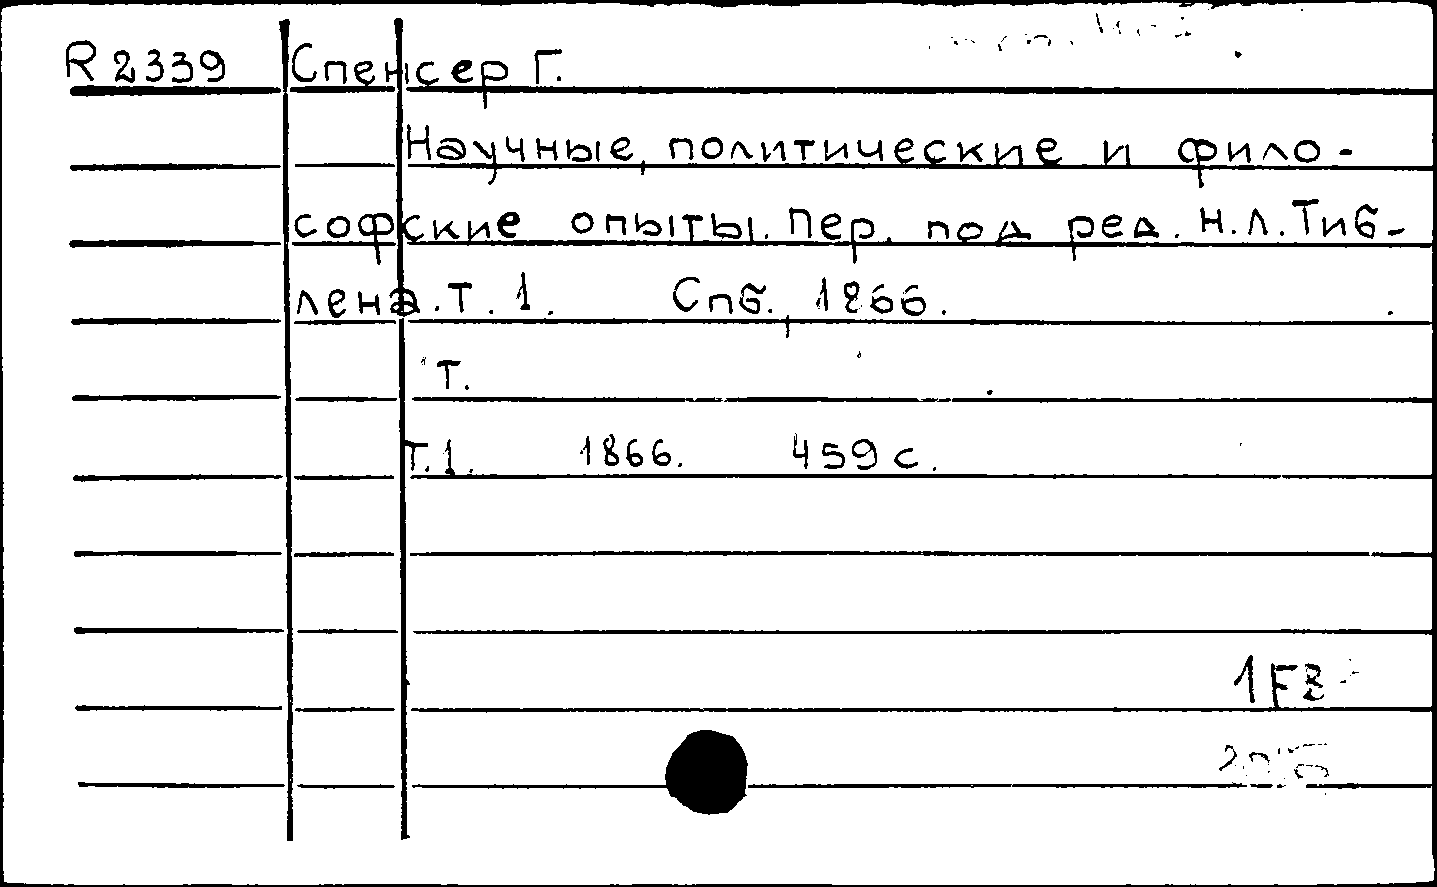 R 2339 Спенсер Г.
Научные, политические и фило-
софские опыты. Пер. под ред. Н.Л.Тиб-
лена. Т. 1. Спб., 1866.
Т.
Т.1. 1866. 459 с.